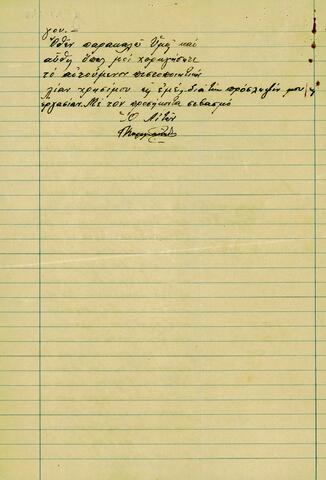 γου.—
Ὅθεν παρακαλῶ Ὑμᾶς καὶ
αὖθις ὅπως μοὶ χορηγήσητε
τὸ αἰτούμενον πιστοποιητικὸν
λίαν χρήσιμον εἰς ἐμὲ, διὰ τὴν πρόσληψίν μου εἰς
ἐργασίαν. Μὲ τὸν προσήκοντα σεβασμὸ
Ὁ Αἰτῶν